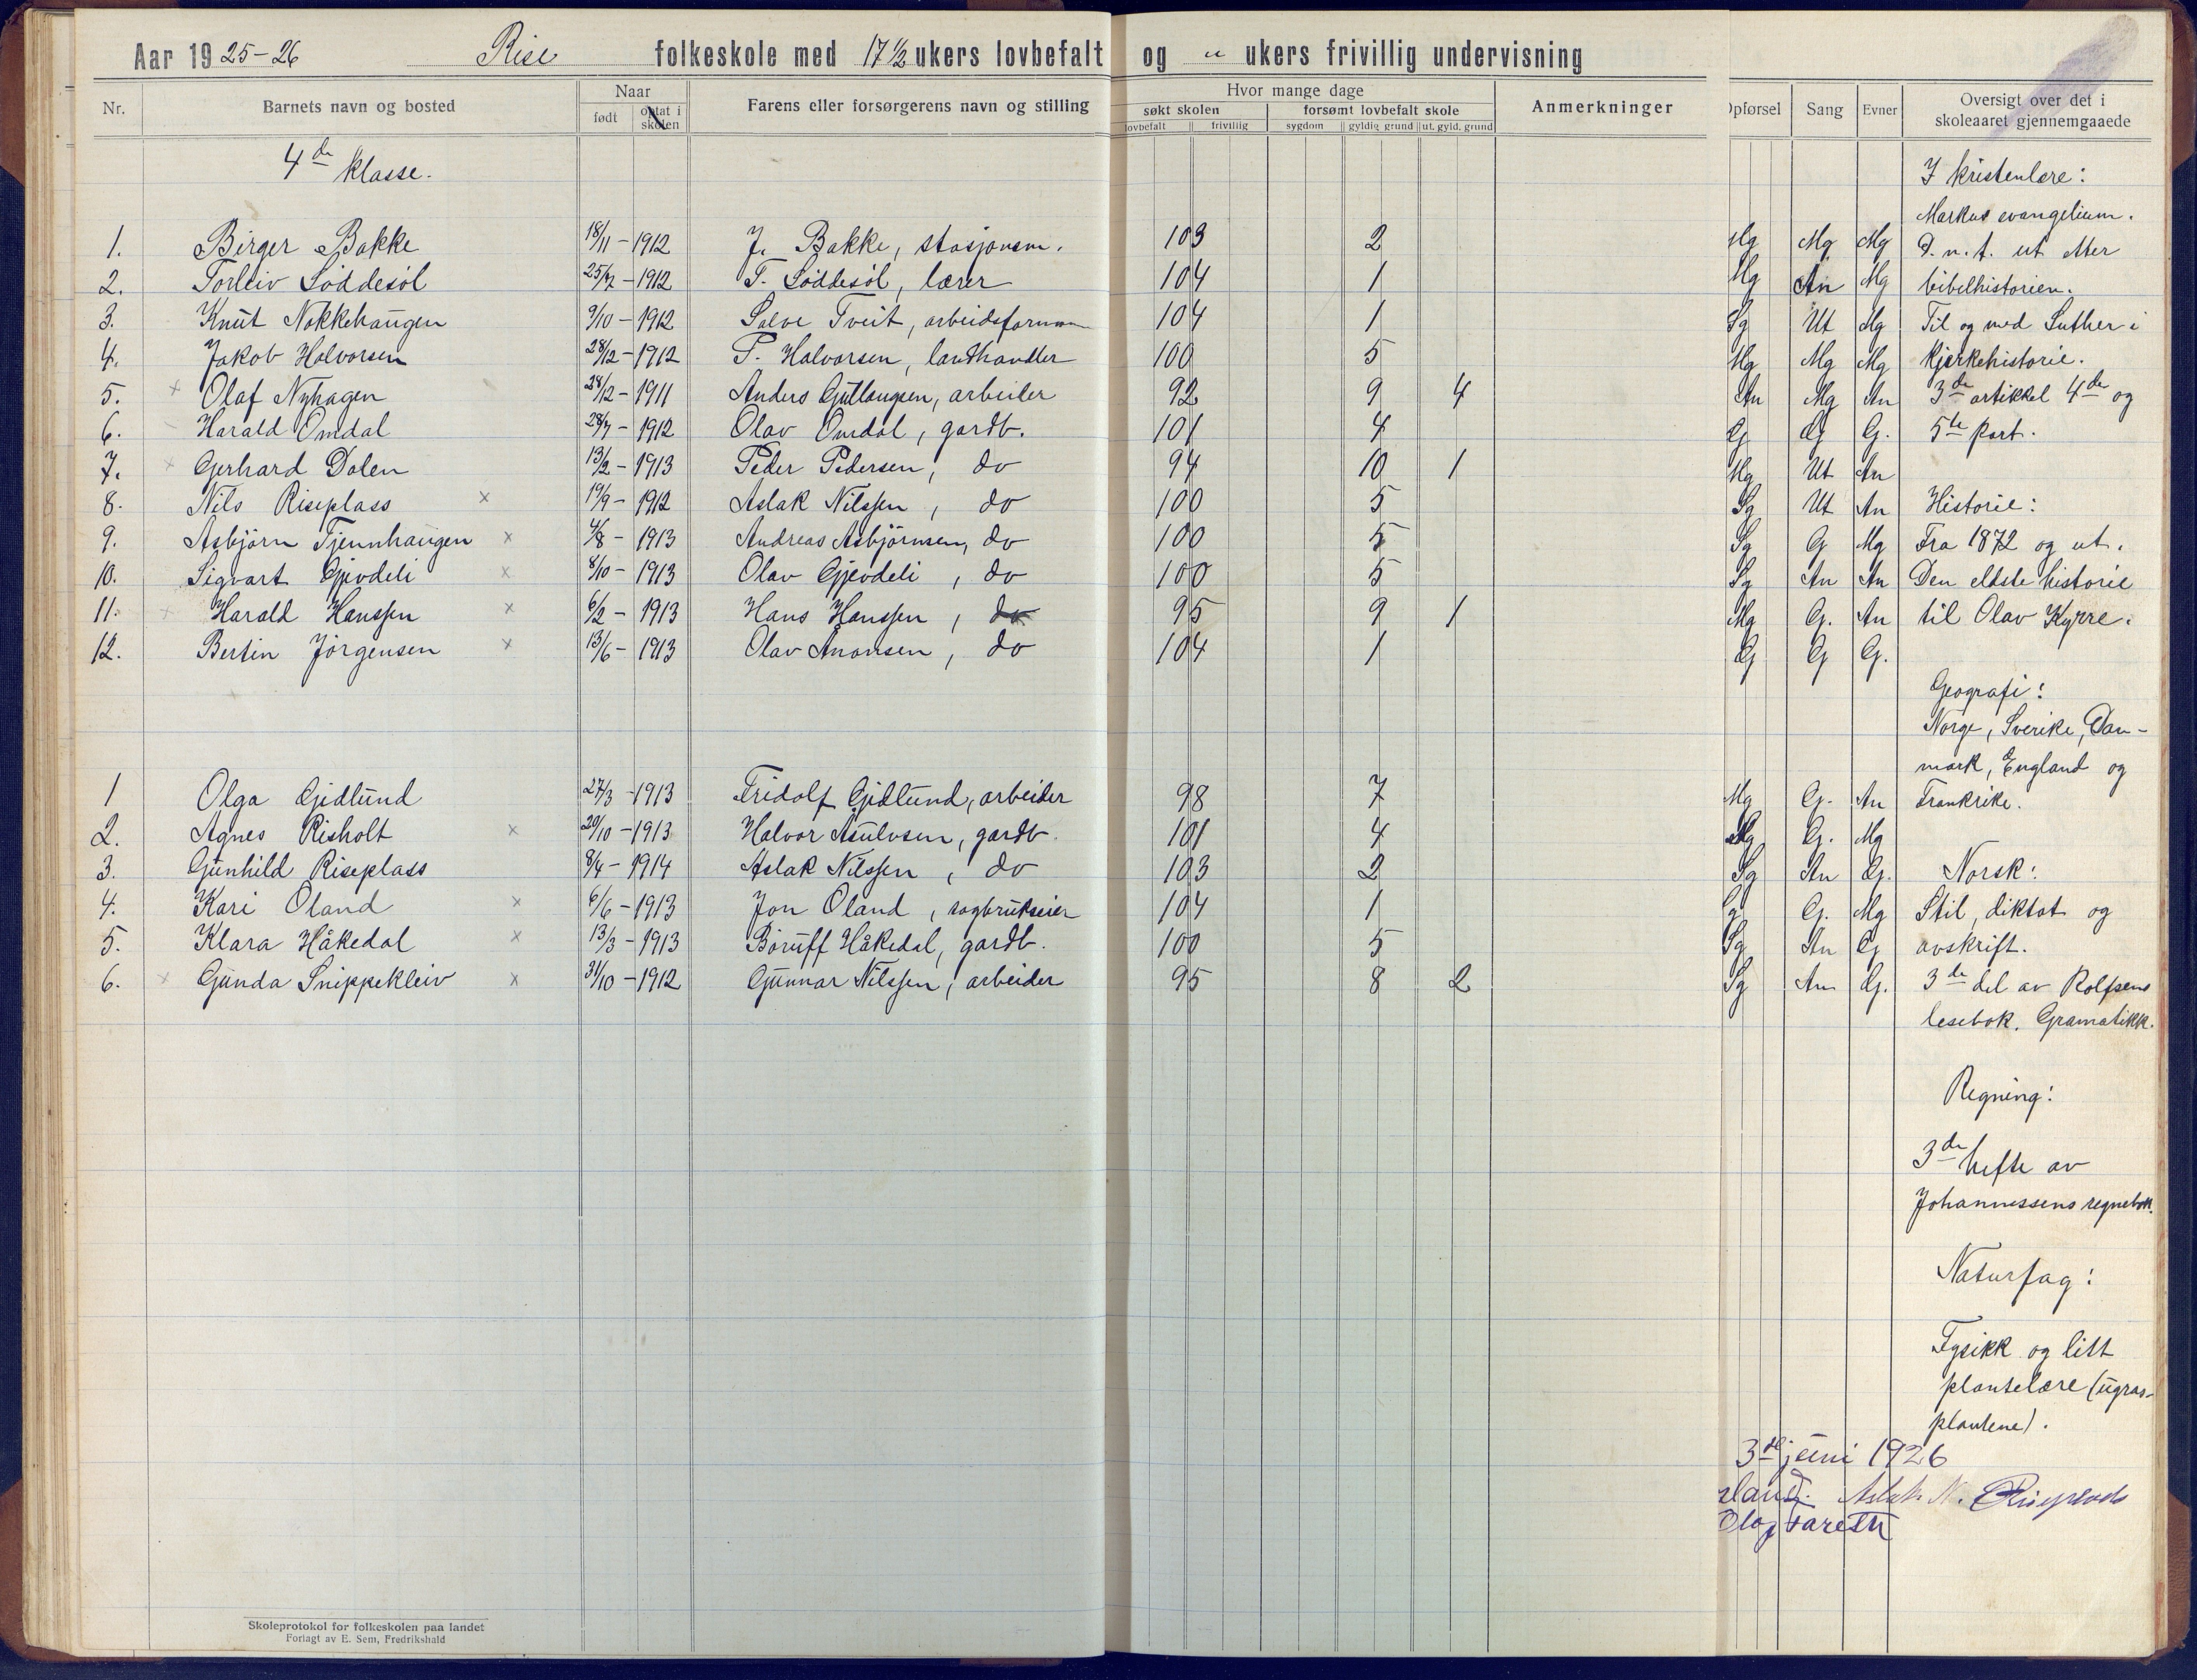 Aar 1925-26 Rise folkeskole med 17 1/2 ukers lovbefalt og " ukers frivillig undervisning
Nr. Barnets navn og bosted Naar født optat i skolen Farens eller forsørgerens navn og stilling Hvor mange dage søkt skolen lovbefalt frivillig forsømt lovbefalt skole sygdom gyldig grund ut. gyld. grund Anmerkninger Opførsel Sang Evner Oversigt over det i skoleaaret gjennemgaaede
4de klasse.
I kristenlære:
Markus evangelium.
1. Birger Bakke 18/11 - 1912 J. Bakke, stasjonsm. 103 2 Mg Mg Mg D.n.t. ut etter
2. Torleiv Løddesøl 25/7 - 1912 T. Løddesøl, lærer 104 1 Mg An Mg bibelhistorien.
3. Knut Nakkehaugen 9/10 - 1912 Salve Tveit, arbeidsformann 104 1 Sg Ut Mg Til og med Luther i
4. Jakob Halvorsen 28/12 - 1912 P. Halvorsen, landhandler 100 5 Mg Mg Mg kjerkehistorie.
5. x Olaf Nyhagen 28/12 - 1911 Anders Gullaugsen, arbeider 92 9 4 An Mg An 3de artikkel 4de og
6. Harald Omdal 28/7 - 1912 Olav Omdal, gardb. 101 4 G G G. 5te part.
7. x Gerhard Dalen 13/2 - 1913 Peder Pedersen, do 94 10 1 Mg Ut An
8. Nils Riseplass x 19/9 - 1912 Aslak Nilssen, do 100 5 Sg Ut An Historie:
9. Asbjørn Tjennhaugen x 4/8 - 1913 Andreas Asbjørnsen, do 100 5 Sg G Mg Fra 1872 og ut.
10. Sigvart Gjevdeli x 8/10 - 1913 Olav Gjevdeli, do 100 5 Sg An An Den eldste historie
11. Harald Hanssen x 6/2 - 1913 Hans Hanssen, do 95 9 1 Mg G. An til Olav Kyrre.
12. Bertin Jørgensen x 13/6 - 1913 Olav Anansen, do 104 1 G G G.
Geografi:
Norge, Sverike, Dan-
mark, England og
1 Olga Gidlund 27/3 - 1913 Fridolf Gidlund, arbeider 98 7 Mg G. An Frankrike.
2. Agnes Risholt x 20/10 - 1913 Halvor Asulvsen, gardb. 101 4 Mg G. Mg
3. Gunhild Riseplass 8/4 - 1914 Aslak Nilssen, do 103 2 Sg An G. Norsk:
4. Kari Øland x 6/6 - 1913 Jon Øland, sagbrukseier 104 1 G. Mg Stil, diktat og
5. Klara Håkedal x 13/3 - 1913 Børuff Håkedal, gardb. 100 5 Sg An G avskrift.
6. x Gunda Snippekleiv x 31/10 - 1912 Gunnar Nilssen, arbeider 95 8 2 Sg An G. 3de del av Rolfsens
lesebok. Gramatikk.
Regning:
3de hefte av
Johannessens regnebok.
Naturfag:
Fysikk og litt
plantelære (ugras-
plantene).
3de juni 1926
land. Aslak N. Riseplads
Olaf
Skoleprotokol for folkeskolen paa landet
Forlagt av E. Sem, Fredrikshald